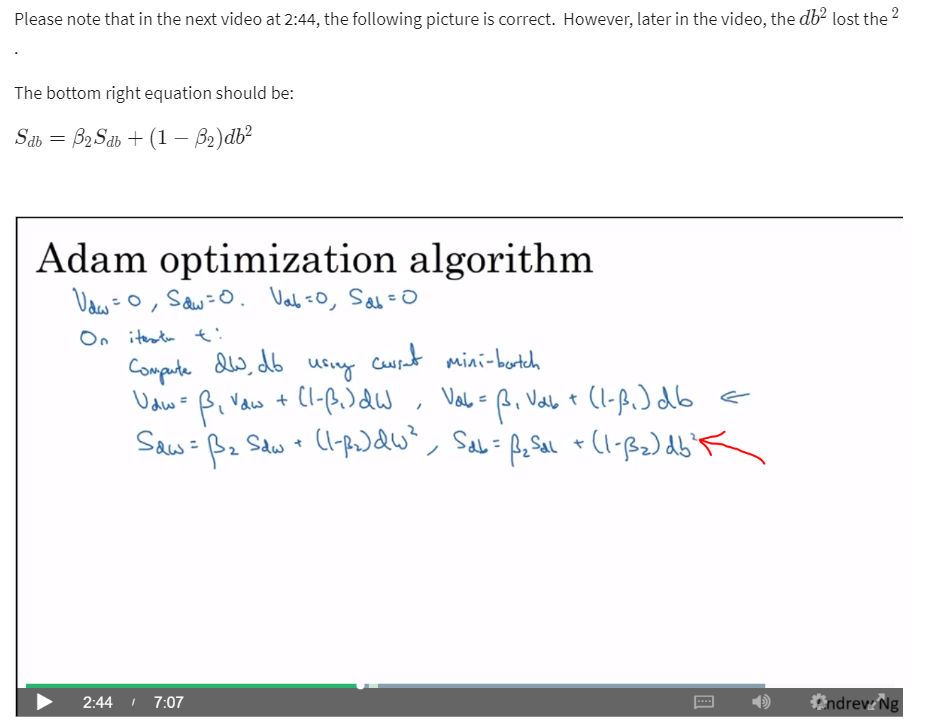 Please note that in the next video at 2:44, the following picture is correct.  However, later in the video, the db² lost the ²
.
The bottom right equation should be:
S_db = β₂S_db + (1 − β₂)db²
Adam optimization algorithm
V_dw = 0, S_dw = 0. V_db = 0, S_db = 0
On iteration t:
Compute dW, db using current mini-batch
V_dw = β₁ V_dw + (1-β₁) dW , V_db = β₁ V_db + (1-β₁) db ←
S_dw = β₂ S_dw + (1-β₂) dW² , S_db = β₂ S_db + (1-β₂) db²
2:44 / 7:07
Andrew Ng